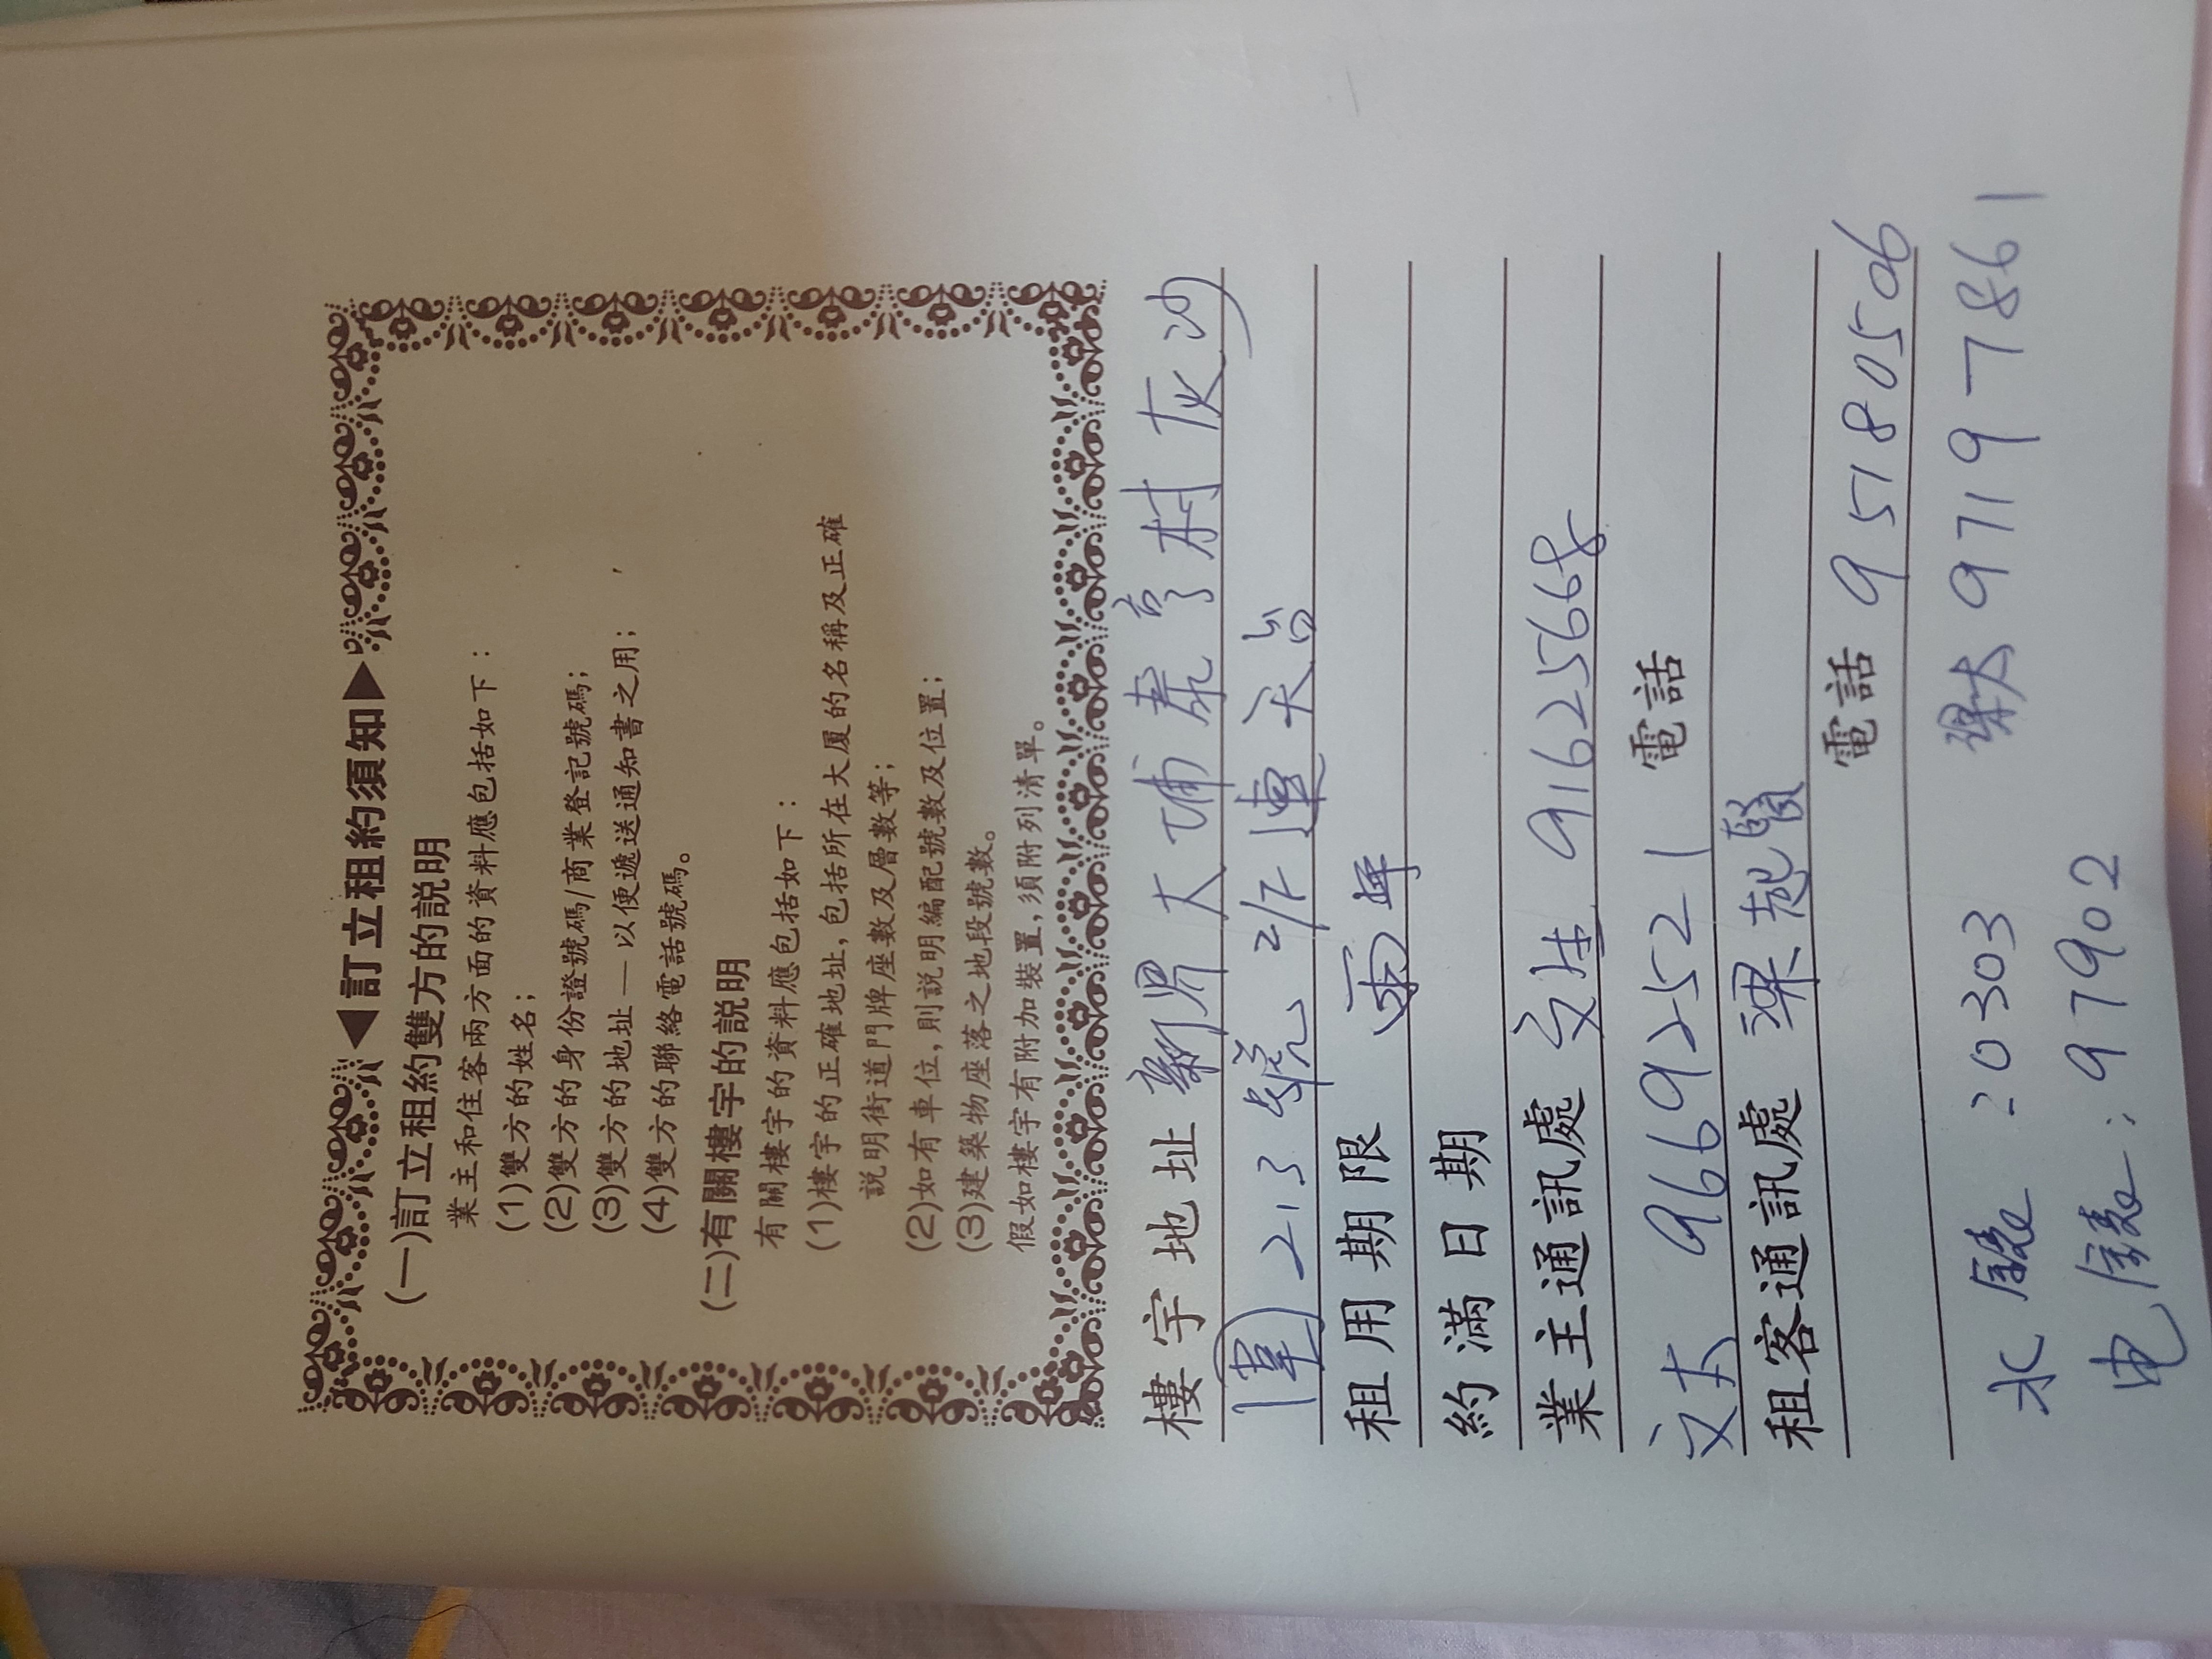 ◀訂立租約須知▶
(一)訂立租約雙方的説明
業主和住客兩方面的資料應包括如下：
(1)雙方的姓名；
(2)雙方的身份證號碼/商業登記號碼；
(3)雙方的地址——以便遞送通知書之用；
(4)雙方的聯絡電話號碼。
(二)有關樓宇的説明
有關樓宇的資料應包括如下：
(1)樓宇的正確地址，包括所在大厦的名稱及正確
説明街道門牌座數及層數等；
(2)如有車位，則説明編配號數及位置；
(3)建築物座落之地段號數。
假如樓宇有附加裝置，須附列清單。
樓宇地址 新界大埔泰亨村灰沙
圍 213號 2/F 連天台
租用期限 兩年
約滿日期
業主通訊處 文生 91625668
文太 96692521 電話
租客通訊處 梁起
電話 95180506
梁太 9719-7861
水錶：20303
电錶：97902